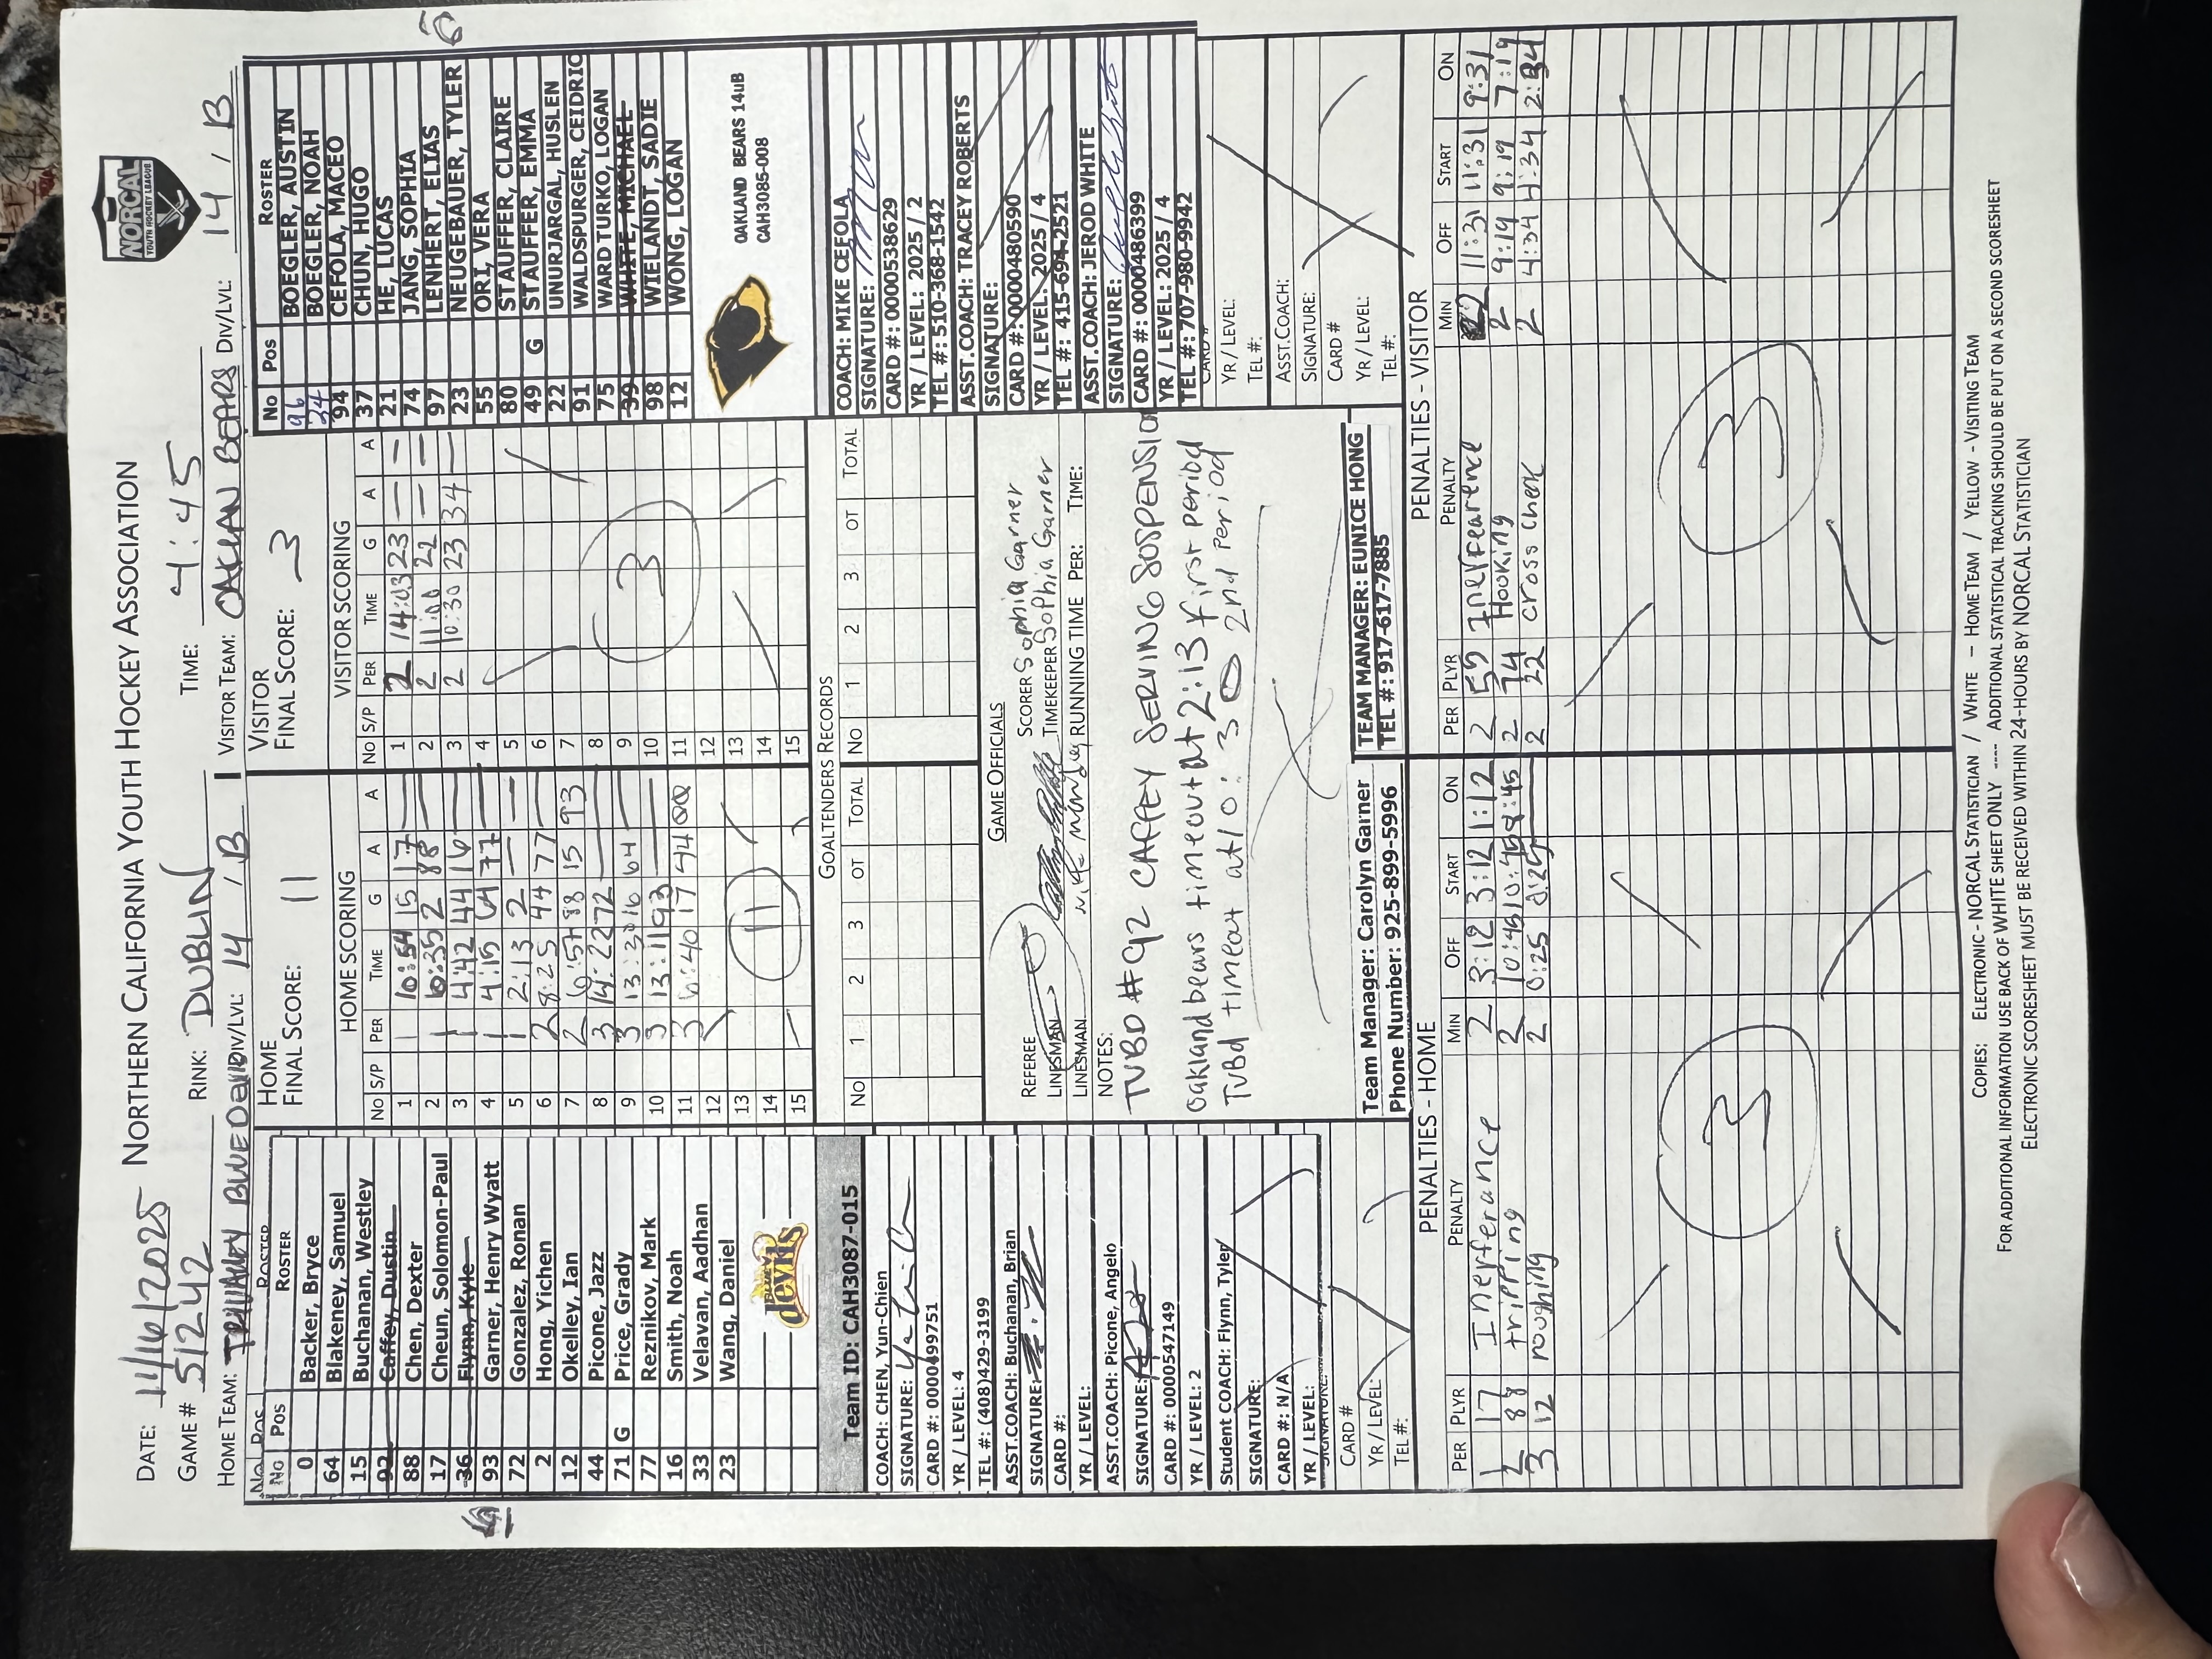 DATE: 11/16/2025 NORTHERN CALIFORNIA YOUTH HOCKEY ASSOCIATION
NORCAL
YOUTH HOCKEY LEAGUE
GAME # 51242 RINK: DUBLIN TIME: 4:45
HOME TEAM: TRIVALLEY BLUE DEVILS DIV/LVL: 14 / B VISITOR TEAM: OAKLAND BEARS DIV/LVL: 14 / B
No Pos ROSTER
No Pos ROSTER
0 Backer, Bryce
64 Blakeney, Samuel
15 Buchanan, Westley
92 Caffey, Dustin
88 Chen, Dexter
17 Cheun, Solomon-Paul
36 Flynn, Kyle
93 Garner, Henry Wyatt
72 Gonzalez, Ronan
2 Hong, Yichen
12 Okelley, Ian
44 Picone, Jazz
71 G Price, Grady
77 Reznikov, Mark
16 Smith, Noah
33 Velavan, Aadhan
23 Wang, Daniel
devils
HOME
FINAL SCORE: 11
HOME SCORING
No S/P PER TIME G A A
1 1 10:54 15 17 —
2 1 6:35 2 88 —
3 1 4:42 44 16 —
4 1 4:15 64 77 —
5 1 2:13 2 — —
6 2 8:25 44 77 —
7 2 6:57 88 15 93
8 3 14:22 72 — —
9 3 13:30 16 64 —
10 3 13:11 93 — —
11 3 6:40 17 44 00
12
13
14
15
11
VISITOR
FINAL SCORE: 3
VISITOR SCORING
No S/P PER TIME G A A
1 2 14:03 23 — —
2 2 11:00 22 — —
3 2 10:30 23 34 —
4
5
6
7
8
9
10
11
12
13
14
15
3
No Pos ROSTER
96 BOEGLER, AUSTIN
34 BOEGLER, NOAH
94 CEFOLA, MACEO
37 CHUN, HUGO
21 HE, LUCAS
74 JANG, SOPHIA
97 LENHERT, ELIAS
23 NEUGEBAUER, TYLER
55 ORI, VERA
80 STAUFFER, CLAIRE
49 G STAUFFER, EMMA
22 UNURJARGAL, HUSLEN
91 WALDSPURGER, CEIDRIC
75 WARD TURKO, LOGAN
39 WHITE, MICHAEL
98 WIELANDT, SADIE
12 WONG, LOGAN
OAKLAND BEARS 14uB
CAH3085-008
Team ID: CAH3087-015
COACH: CHEN, Yun-Chien
SIGNATURE:
CARD #: 0000499751
YR / LEVEL: 4
TEL #: (408)429-3199
ASST.COACH: Buchanan, Brian
SIGNATURE:
CARD #:
YR / LEVEL:
ASST.COACH: Picone, Angelo
SIGNATURE:
CARD #: 0000547149
YR / LEVEL: 2
Student COACH: Flynn, Tyler
SIGNATURE:
CARD #: N/A
YR / LEVEL:
SIGNATURE:
CARD #
YR / LEVEL:
TEL #:
GOALTENDERS RECORDS
No 1 2 3 OT TOTAL No 1 2 3 OT TOTAL
GAME OFFICIALS
REFEREE SCORER Sophia Garner
LINESMAN TIMEKEEPER Sophia Garner
LINESMAN RUNNING TIME PER: TIME:
NOTES:
TVBD #92 CAFFEY SERVING SUSPENSION
Oakland bears timeout at 2:13 first period
TVBd timeout at 10:30 2nd period
Team Manager: Carolyn Garner
Phone Number: 925-899-5996
TEAM MANAGER: EUNICE HONG
TEL #: 917-617-7885
COACH: MIKE CEFOLA
SIGNATURE:
CARD #: 0000538629
YR / LEVEL: 2025 / 2
TEL #: 510-368-1542
ASST.COACH: TRACEY ROBERTS
SIGNATURE:
CARD #: 0000480590
YR / LEVEL: 2025 / 4
TEL #: 415-694-2521
ASST.COACH: JEROD WHITE
SIGNATURE:
CARD #: 0000486399
YR / LEVEL: 2025 / 4
TEL #: 707-980-9942
CARD #
YR / LEVEL:
TEL #:
ASST.COACH:
SIGNATURE:
CARD #
YR / LEVEL:
TEL #:
PENALTIES - HOME
PER PLYR PENALTY MIN OFF START ON
1 17 Inerferance 2 3:12 3:12 1:12
2 88 tripping 2 10:45 10:45 8:45
3 12 roughing 2 0:25 0:25 —
3
PENALTIES - VISITOR
PER PLYR PENALTY MIN OFF START ON
2 55 Inerfearence 2 11:31 11:31 9:31
2 74 Hooking 2 9:19 9:19 7:19
2 22 cross check 2 4:34 4:34 2:34
3
COPIES: ELECTRONIC - NORCAL STATISTICIAN / WHITE - HOME TEAM / YELLOW - VISITING TEAM
FOR ADDITIONAL INFORMATION USE BACK OF WHITE SHEET ONLY ---- ADDITIONAL STATISTICAL TRACKING SHOULD BE PUT ON A SECOND SCORESHEET
ELECTRONIC SCORESHEET MUST BE RECEIVED WITHIN 24-HOURS BY NORCAL STATISTICIAN